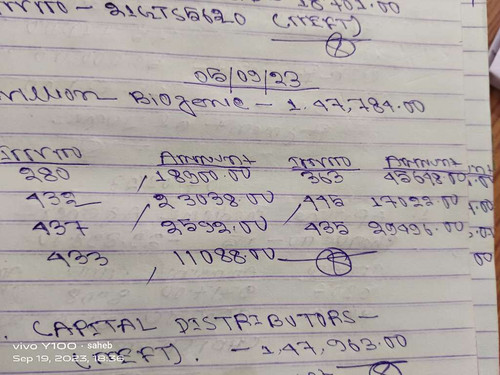 INVNO - 21GITS5620 18701.00
(NEFT)
05/09/23
Biogenic - 1.47,784.00
INVNO Amount INVNO Amount
280 18900.00 363 45648.00
432 23038.00 445 17023.00
437 2592.00 435 29496.00
433 11088.00
00
CAPITAL DISTRIBUTORS-
(NEFT). - 1,47,963.00
vivo Y100 · saheb
Sep 19, 2023, 18:36